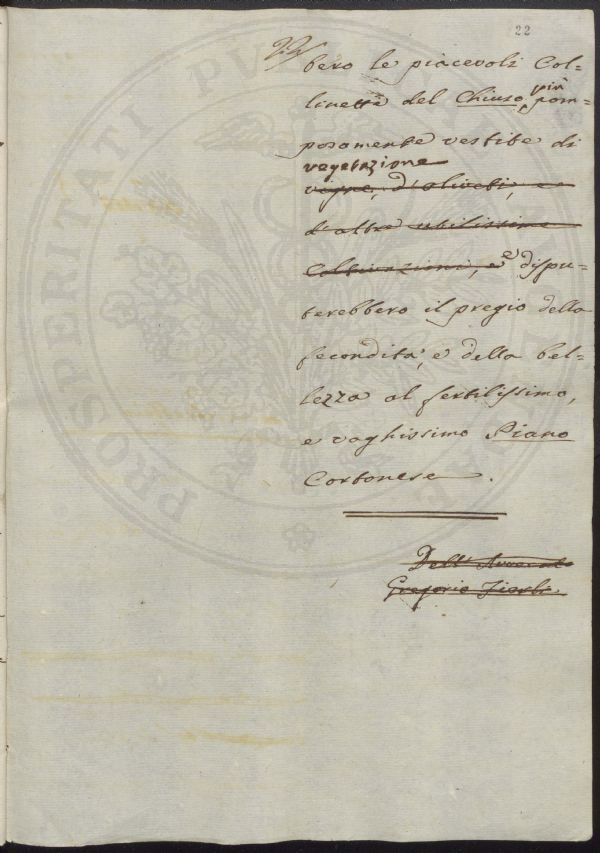 22
bero le piacevoli Col=
linette del Chiuso, più pom=
posamente vestite di
vegetazione
vigne, d'oliveti, e
d'altre utilissime
Coltivazioni, e e dispu=
terebbero il pregio della
fecondità, e della bel=
lezza al fertilissimo,
e vaghissimo Piano
Cortonese.
Dell' Avvocato
Gregorio Fierli.
PROSPERITATI PUBLICAE